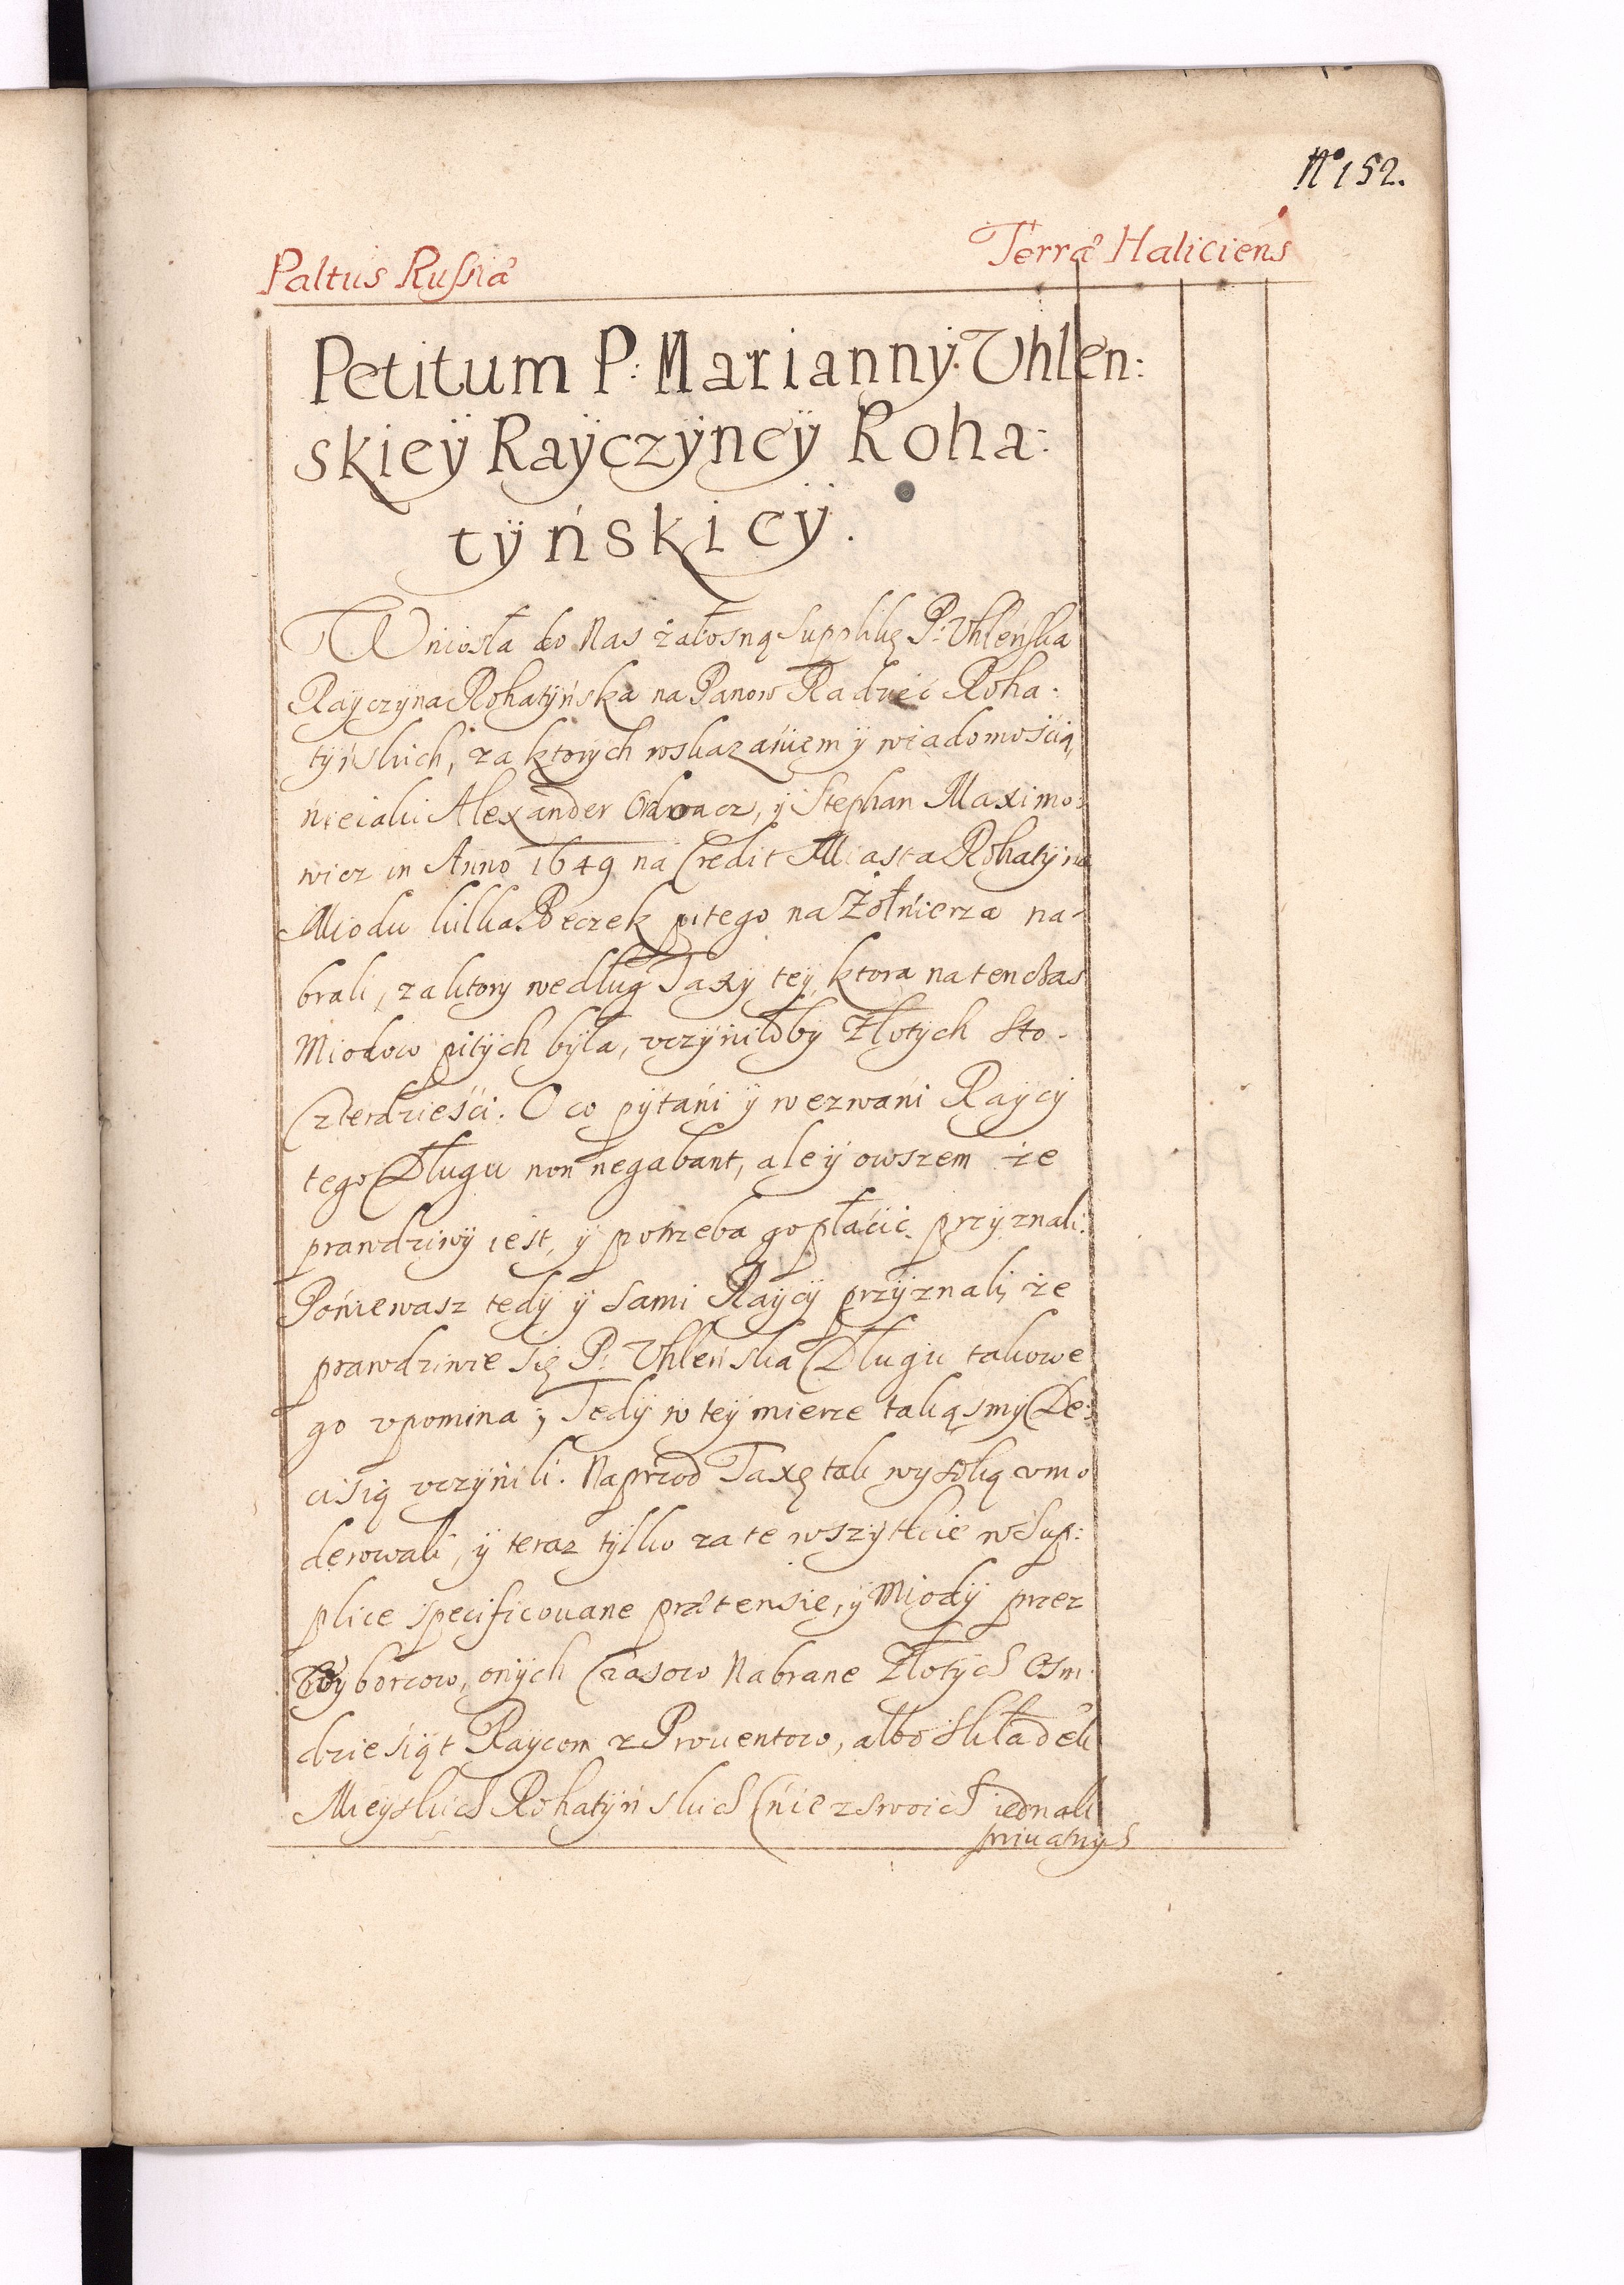 No 152.
Paltus Russiæ
Terræ Haliciens
Petitum P: Marianny Vhlen:
skieÿ Raÿczÿneÿ Roha:
tÿńskieÿ.
Wniosła do Nas żałosną supplikę P: Vhleńska
Raÿczÿna Rohatÿńska na Panow Radziec Roha:
tÿńskich, za ktorych wskazańiem ÿ wiadomośćią,
ńieiaki Alexander, ÿ Stephan Maximo:
wicz in Anno 1649 na Credit Miasta Rohatÿna
Miodu kilka Beczek pitego na Żołńierza na-
brali, za ktory według Taxÿ teÿ, ktora natenczas
Miodow pitÿch bÿła, vczÿniłobÿ Złotÿch sto-
Czterdzieśći. O co pÿtańi ÿ wezwańi Raÿcÿ
tego Długu non negabant, ale ÿ owszem że
prawdziwÿ iest, ÿ potrzeba go płaćić przÿznali.
Pońiewasz tedÿ ÿ sami Raÿcÿ przÿznali, że
prawdziwie się P: Vhleńska Długu takowe
go vpomina; Tedÿ w teÿ mierze takąsmÿ De:
cisią vczÿnili. Naprzod Taxę tak wysoką vmo
derowali, ÿ teraz tÿlko za te wszÿtkie w Sup:
plice specificouane prætensie, ÿ Miodÿ przez
Wÿborcow, onÿch Czasow Nabrane Złotÿch Osm
dziesiąt Raÿcom z Prouentow, albo Składek
Mieÿskich Rohatÿńskich (ńie z swoich iednak
priuatnÿch